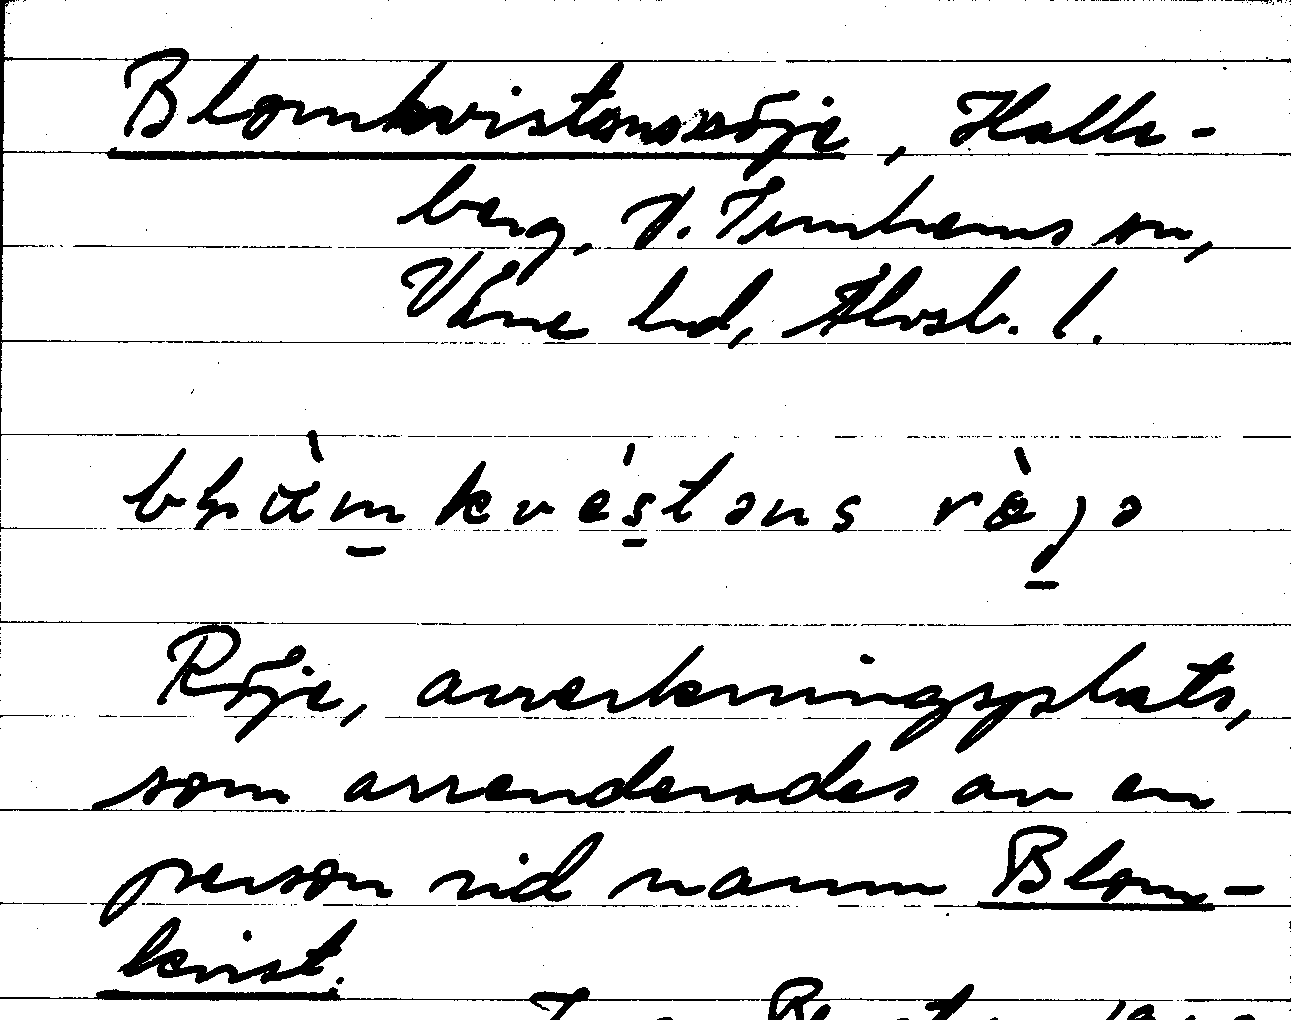 Blomkvistens röje, Halle-
berg, V. Tunhems sn,
Väne hd, Älvsb. l.
blu̇̀m̲ kvés̲təns rø̀j̲ə
Röje, avverkningsplats,
som arrenderades av en
person vid namn Blom-
kvist.